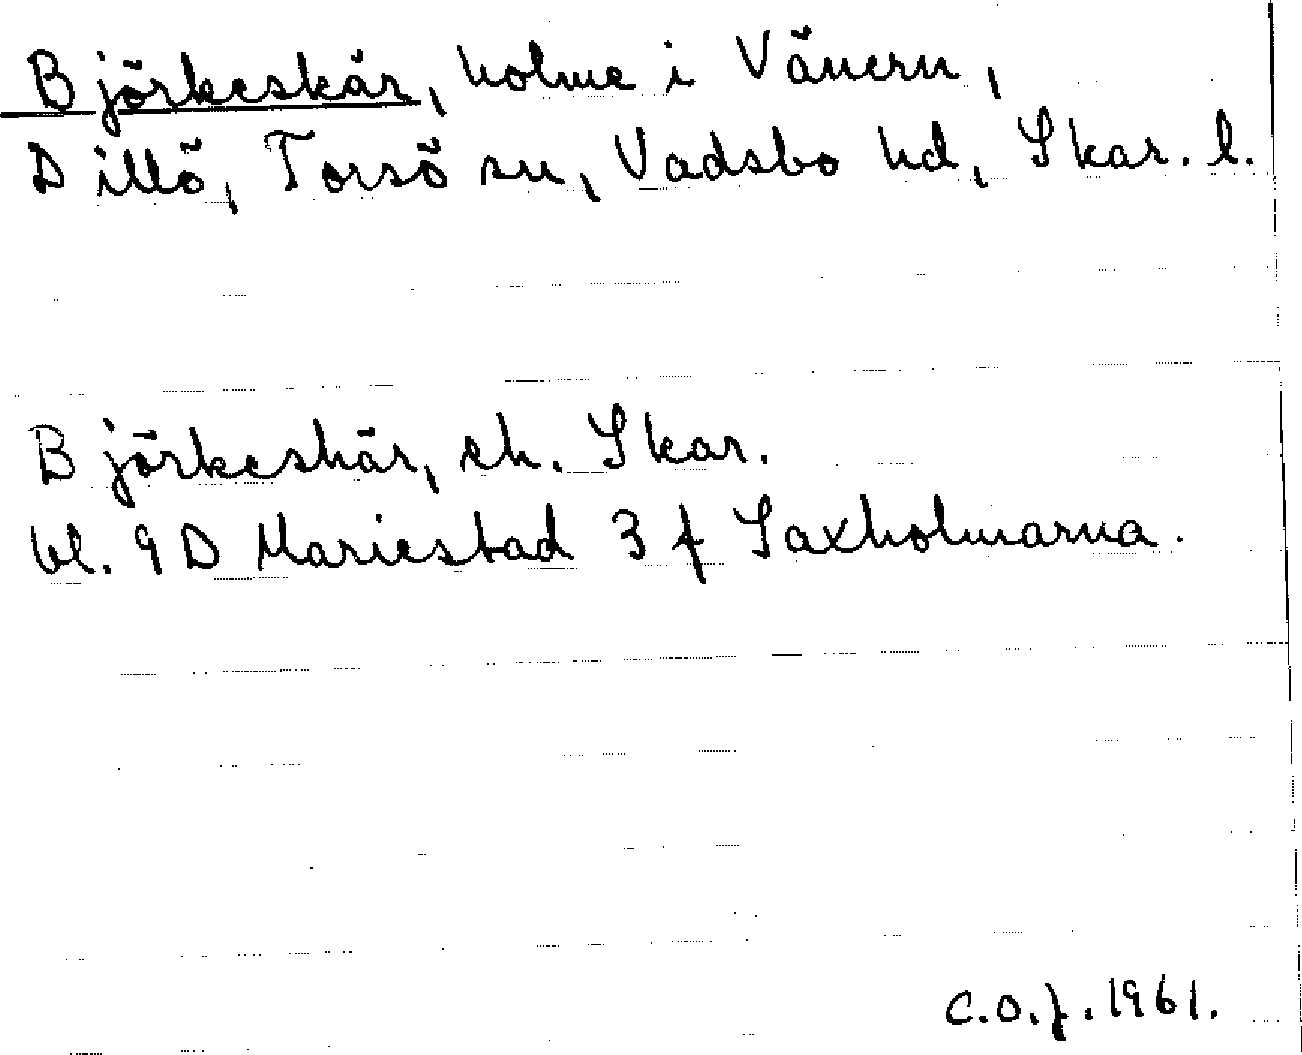 Björkeskär, holme i Vänern,
Dillö, Torsö sn, Vadsbo hd, Skar. l.
Björkeskär, ek. Skar.
bl. 9D Mariestad 3 f Saxholmarna.
C.O.J. 1961.